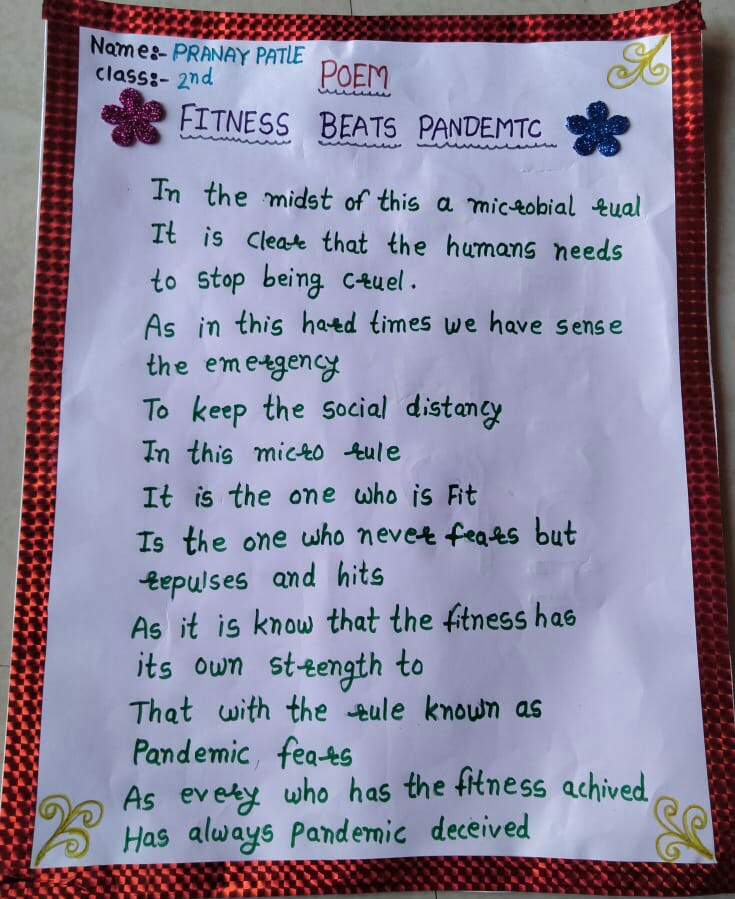 Name:- PRANAY PATLE
Class:- 2nd
POEM
FITNESS BEATS PANDEMIC
In the midst of this a microbial rual
It is clear that the humans needs
to stop being cruel.
As in this hard times we have sense
the emergency
To keep the social distancy
In this micro rule
It is the one who is Fit
Is the one who never fears but
repulses and hits
As it is know that the fitness has
its own strength to
That with the rule known as
Pandemic, fears
As every who has the fitness achived
Has always Pandemic deceived